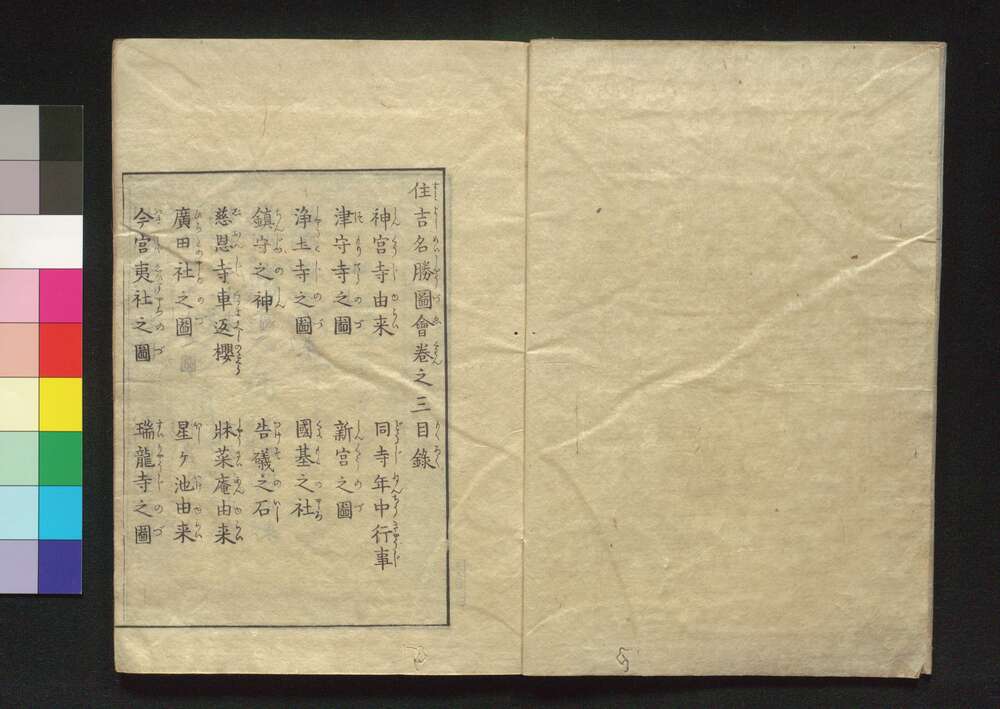 住吉名勝圖會巻之三目錄
神宮寺由来　同寺年中行事
津守寺之圖　新宮之圖
浄土寺之圖　國基之社
鎮守之神　告礒之石
慈恩寺車返櫻　牀菜庵由来
廣田社之圖　星ヶ池由来
今宮夷社之圖　瑞龍寺之圖